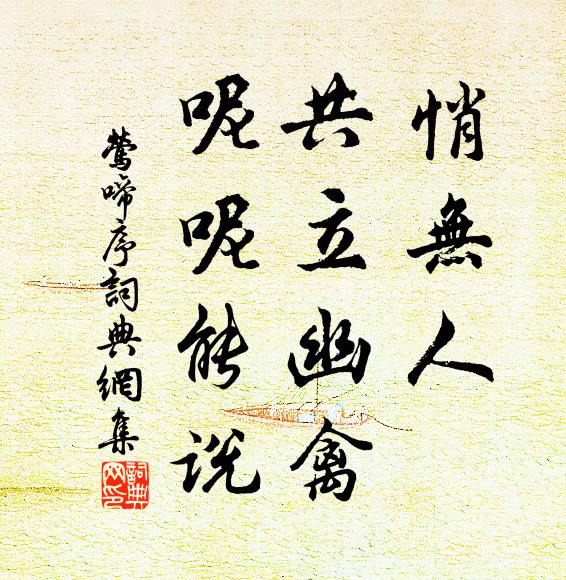 悄無人
共立幽禽
呢呢能说
鶯啼序詞典網集
詞典
网印